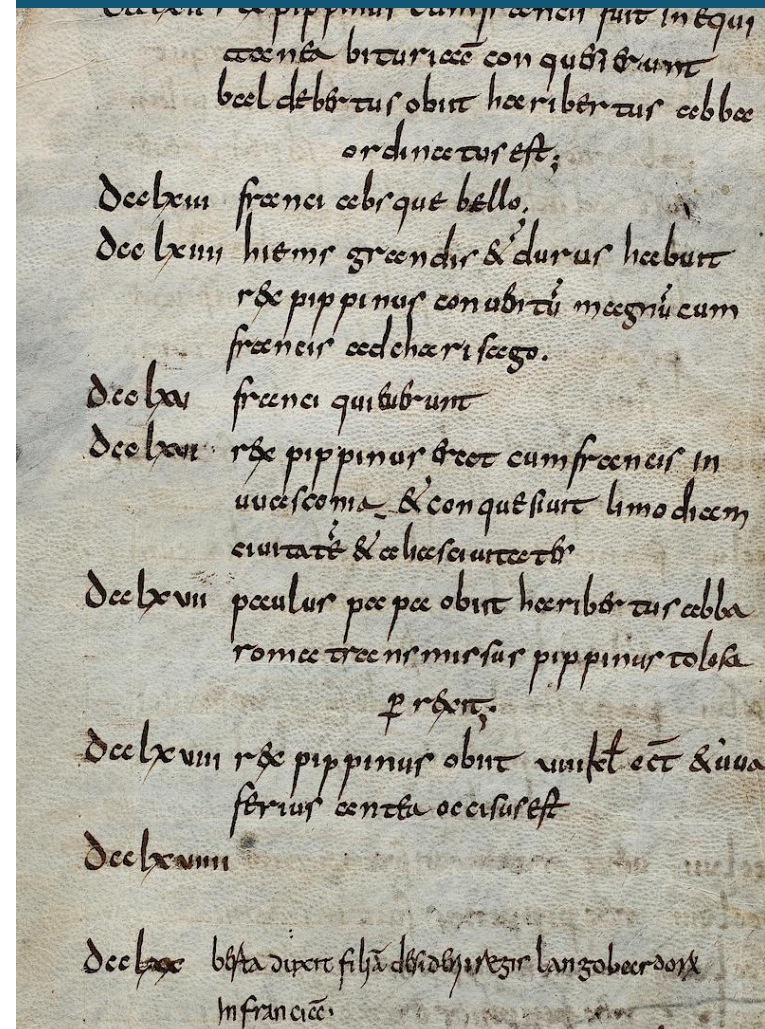 rex pippinus cum francis fuit in equi
tania bituricā conquesierunt
baldebertus obiit haribertus abba
ordinatus est;
dcclxiii franci absque bello;
dcclxiiii hiems grandis & durus habuit
rex pippinus conuentū magnū cum
francis
dcclxv franci quieuerunt
dcclxvi rex pippinus erat cum francis in
uuasconia & conquesiuit limodicam
ciuitatē & alias ciuitates
dcclxvii paulus papa obiit haribertus abba
roma transmissus pippinus tolosa
p rexit;
dcclxviii rex pippinus obiit viii kl oct & uua
ferius antea occisus est
dcclxviiii
dcclxx berta dixit filiā desiderii regis langobardorū
in franciā.